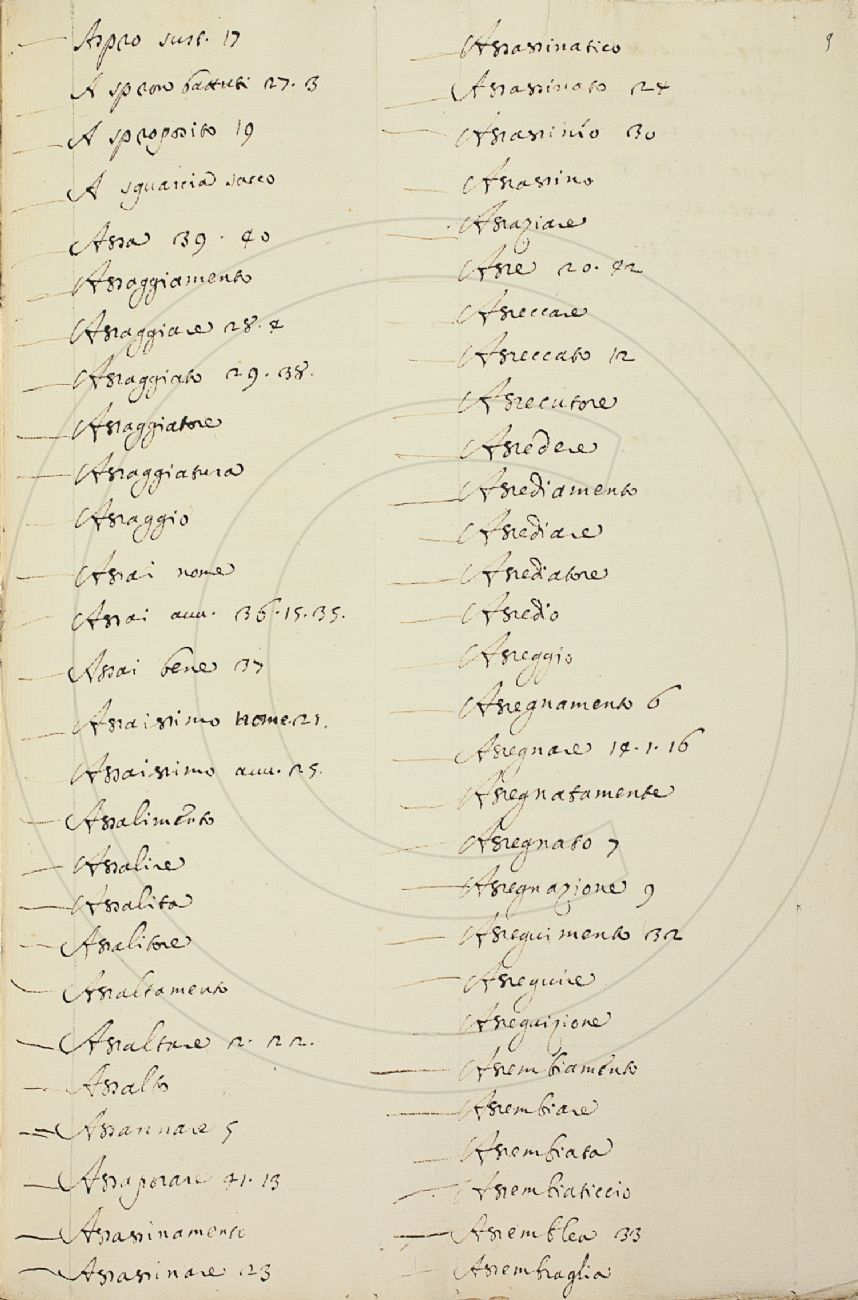 Aspro sust. 17
A spron battuti 27. 3
A sproposito 19
A squarcia sacco
Assa 39. 40
Assaggiamento
Assaggiare 28. 4
Assaggiato 29. 38.
Assaggiatore
Assaggiatura
Assaggio
Assai nome
Assai auu. 36. 15. 35.
Assai bene 37
Assaissimo nome. 21.
Assaissimo auu. 25.
Assalimento
Assalire
Assalita
Assalitore
Assaltamento
Assaltare 2. 22.
Assalto
Assannare 5
Assaporare 41. 13
Assassinamento
Assassinare 23
9
Assassinatico
Assassinato 24
Assassinio 30
Assassino
Assaziare
Asse 20. 42
Asseccare
Asseccato 12
Assecutore
Assedere
Assediamento
Assediare
Assediatore
Assedio
Asseggio
Assegnamento 6
Assegnare 14. 1. 16
Assegnatamente
Assegnato 7
Assegnazione 9
Asseguimento 32
Asseguire
Asseguizione
Assembiamento
Assembiare
Assembiata
Assembiaticcio
Assemblea 33
Assembraglia